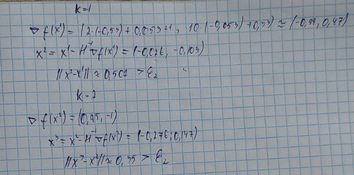 k=1
∇f(x¹) = (2·(-0,53)+0,053+1, 10·(-0,053)+0,53) ≈ (-0,01, 0,47)
x² = x¹ - H⁻¹∇f(x¹) = (-0,026, -0,103)
||x²-x¹|| ≈ 0,502 > ε₂
k=2
∇f(x²) = (0,85, -1)
x³ = x² - H⁻¹∇f(x²) = (-0,276; 0,147)
||x³-x²|| ≈ 0,35 > ε₂